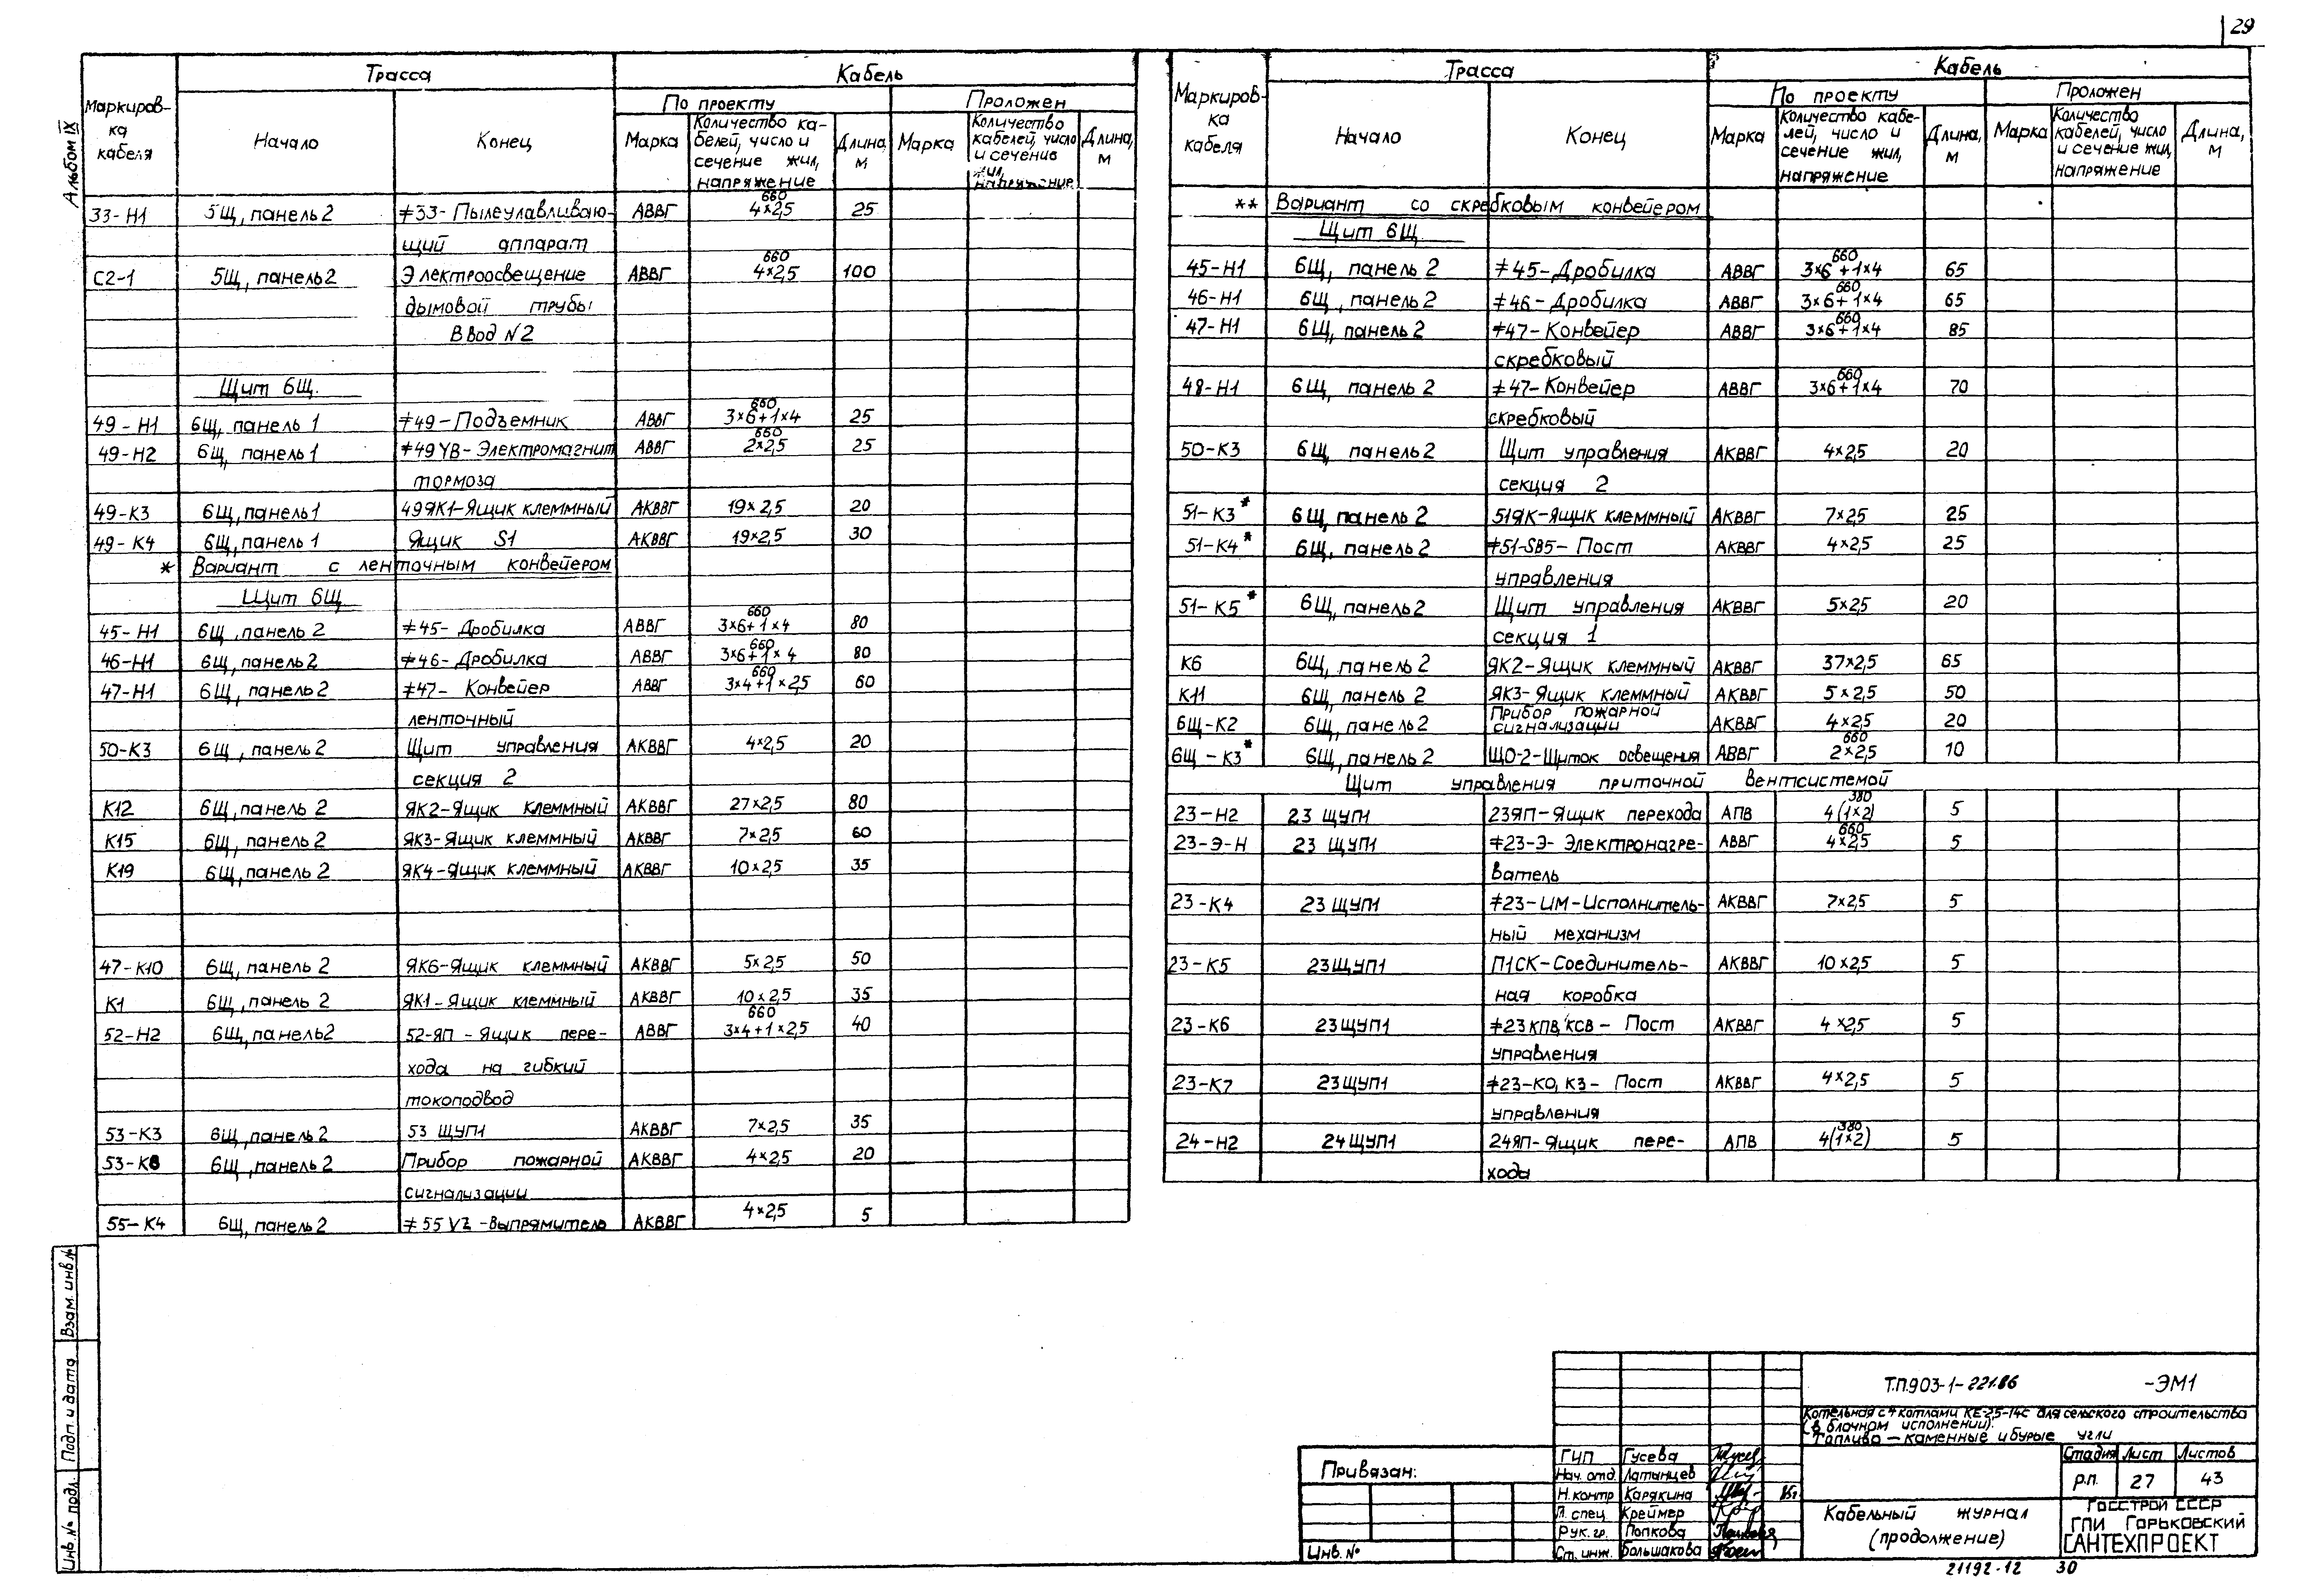 29
Альбом IX
Маркировка кабеля | Трасса | Кабель
Начало | Конец | По проекту | Проложен
Марка | Количество кабелей, число и сечение жил, напряжение | Длина, м | Марка | Количество кабелей, число и сечение жил, напряжение | Длина, м
33-Н1 | 5Щ, панель 2 | ≠33-Пылеулавливаю- | АВВГ | 660 4×2,5 | 25
щий аппарат
С2-1 | 5Щ, панель 2 | Электроосвещение | АВВГ | 660 4×2,5 | 100
дымовой трубы
Ввод N2
Щит 6Щ.
49-Н1 | 6Щ, панель 1 | ≠49-Подъемник | АВВГ | 660 3×6+1×4 | 25
49-Н2 | 6Щ, панель 1 | ≠49YB-Электромагнит | АВВГ | 660 2×2,5 | 25
тормоза
49-К3 | 6Щ, панель 1 | 49ЯК1-Ящик клеммный | АКВВГ | 19×2,5 | 20
49-К4 | 6Щ, панель 1 | Ящик S1 | АКВВГ | 19×2,5 | 30
* Вариант с ленточным конвейером
Щит 6Щ
45-Н1 | 6Щ, панель 2 | ≠45-Дробилка | АВВГ | 660 3×6+1×4 | 80
46-Н1 | 6Щ, панель 2 | ≠46-Дробилка | АВВГ | 660 3×6+1×4 | 80
47-Н1 | 6Щ, панель 2 | ≠47-Конвейер | АВВГ | 660 3×4+1×2,5 | 60
ленточный
50-К3 | 6Щ, панель 2 | Щит управления | АКВВГ | 4×2,5 | 20
секция 2
К12 | 6Щ, панель 2 | ЯК2-Ящик клеммный | АКВВГ | 27×2,5 | 80
К15 | 6Щ, панель 2 | ЯК3-Ящик клеммный | АКВВГ | 7×2,5 | 60
К19 | 6Щ, панель 2 | ЯК4-Ящик клеммный | АКВВГ | 10×2,5 | 35
47-К10 | 6Щ, панель 2 | ЯК6-Ящик клеммный | АКВВГ | 5×2,5 | 50
К1 | 6Щ, панель 2 | ЯК1-Ящик клеммный | АКВВГ | 10×2,5 | 35
52-Н2 | 6Щ, панель 2 | 52-ЯП-Ящик пере- | АВВГ | 660 3×4+1×2,5 | 40
хода на гибкий
токоподвод
53-К3 | 6Щ, панель 2 | 53 ЩУП1 | АКВВГ | 7×2,5 | 35
53-К8 | 6Щ, панель 2 | Прибор пожарной | АКВВГ | 4×2,5 | 20
сигнализации
55-К4 | 6Щ, панель 2 | ≠55VZ-Выпрямитель | АКВВГ | 4×2,5 | 5
Маркировка кабеля | Трасса | Кабель
Начало | Конец | По проекту | Проложен
Марка | Количество кабелей, число и сечение жил, напряжение | Длина, м | Марка | Количество кабелей, число и сечение жил, напряжение | Длина, м
** Вариант со скребковым конвейером
Щит 6Щ
45-Н1 | 6Щ, панель 2 | ≠45-Дробилка | АВВГ | 660 3×6+1×4 | 65
46-Н1 | 6Щ, панель 2 | ≠46-Дробилка | АВВГ | 660 3×6+1×4 | 65
47-Н1 | 6Щ, панель 2 | ≠47-Конвейер | АВВГ | 660 3×6+1×4 | 85
скребковый
48-Н1 | 6Щ, панель 2 | ≠47-Конвейер | АВВГ | 660 3×6+1×4 | 70
скребковый
50-К3 | 6Щ, панель 2 | Щит управления | АКВВГ | 4×2,5 | 20
секция 2
51-К3* | 6Щ, панель 2 | 51ЯК-Ящик клеммный | АКВВГ | 7×2,5 | 25
51-К4* | 6Щ, панель 2 | ≠51-SB5-Пост | АКВВГ | 4×2,5 | 25
управления
51-К5* | 6Щ, панель 2 | Щит управления | АКВВГ | 5×2,5 | 20
секция 1
К6 | 6Щ, панель 2 | ЯК2-Ящик клеммный | АКВВГ | 37×2,5 | 65
К11 | 6Щ, панель 2 | ЯК3-Ящик клеммный | АКВВГ | 5×2,5 | 50
6Щ-К2 | 6Щ, панель 2 | Прибор пожарной сигнализации | АКВВГ | 4×2,5 | 20
6Щ-К3* | 6Щ, панель 2 | ЩО-2-Щиток освещения | АВВГ | 660 2×2,5 | 10
Щит управления приточной вентсистемой
23-Н2 | 23 ЩУП1 | 23ЯП-Ящик перехода | АПВ | 380 4(1×2) | 5
23-Э-Н | 23 ЩУП1 | ≠23-Э-Электронагре- | АВВГ | 660 4×2,5 | 5
ватель
23-К4 | 23 ЩУП1 | ≠23-ИМ-Исполнитель- | АКВВГ | 7×2,5 | 5
ный механизм
23-К5 | 23ЩУП1 | П1СК-Соединитель- | АКВВГ | 10×2,5 | 5
ная коробка
23-К6 | 23ЩУП1 | ≠23 КПВ, КСВ - Пост | АКВВГ | 4×2,5 | 5
управления
23-К7 | 23ЩУП1 | ≠23-КО, КЗ - Пост | АКВВГ | 4×2,5 | 5
управления
24-Н2 | 24ЩУП1 | 24ЯП-Ящик пере- | АПВ | 380 4(1×2) | 5
хода
Взам. инв. №
Подп. и дата
Инв. № подл.
Т.П.903-1-221.86 -ЭМ1
Котельная с 4 котлами КЕ-25-14с для сельского строительства
(в блочном исполнении).
Топливо - каменные и бурые угли
Привязан:
Инв. №
ГИП Гусева
Нач. отд. Латанцев
Н. контр Карякина 85г
Гл. спец Креймер
Рук. гр. Попкова
Ст. инж. Большакова
Стадия Лист Листов
р.п. 27 43
Кабельный журнал
(продолжение)
Госстрой СССР
ГПИ Горьковский
САНТЕХПРОЕКТ
21192-12 30